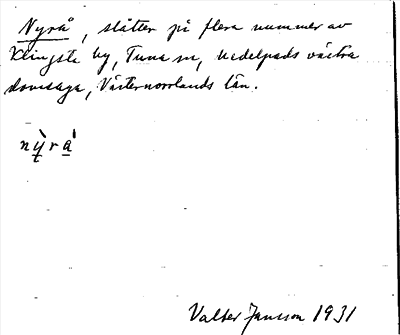 Nyrå, slåtter på flera nummer av
Klingsta by, Tuna sn, Medelpads västra
domsaga, Västernorrlands län.
nỳrá
Valter Jansson 1931